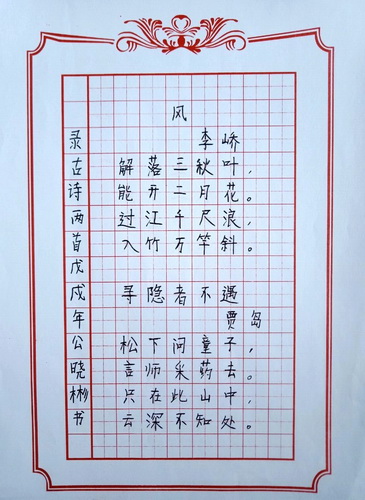 风
李峤
解落三秋叶，
能开二月花。
过江千尺浪，
入竹万竿斜。
寻隐者不遇
贾岛
松下问童子，
言师采药去。
只在此山中，
云深不知处。
录古诗两首戊戌年公晓彬书